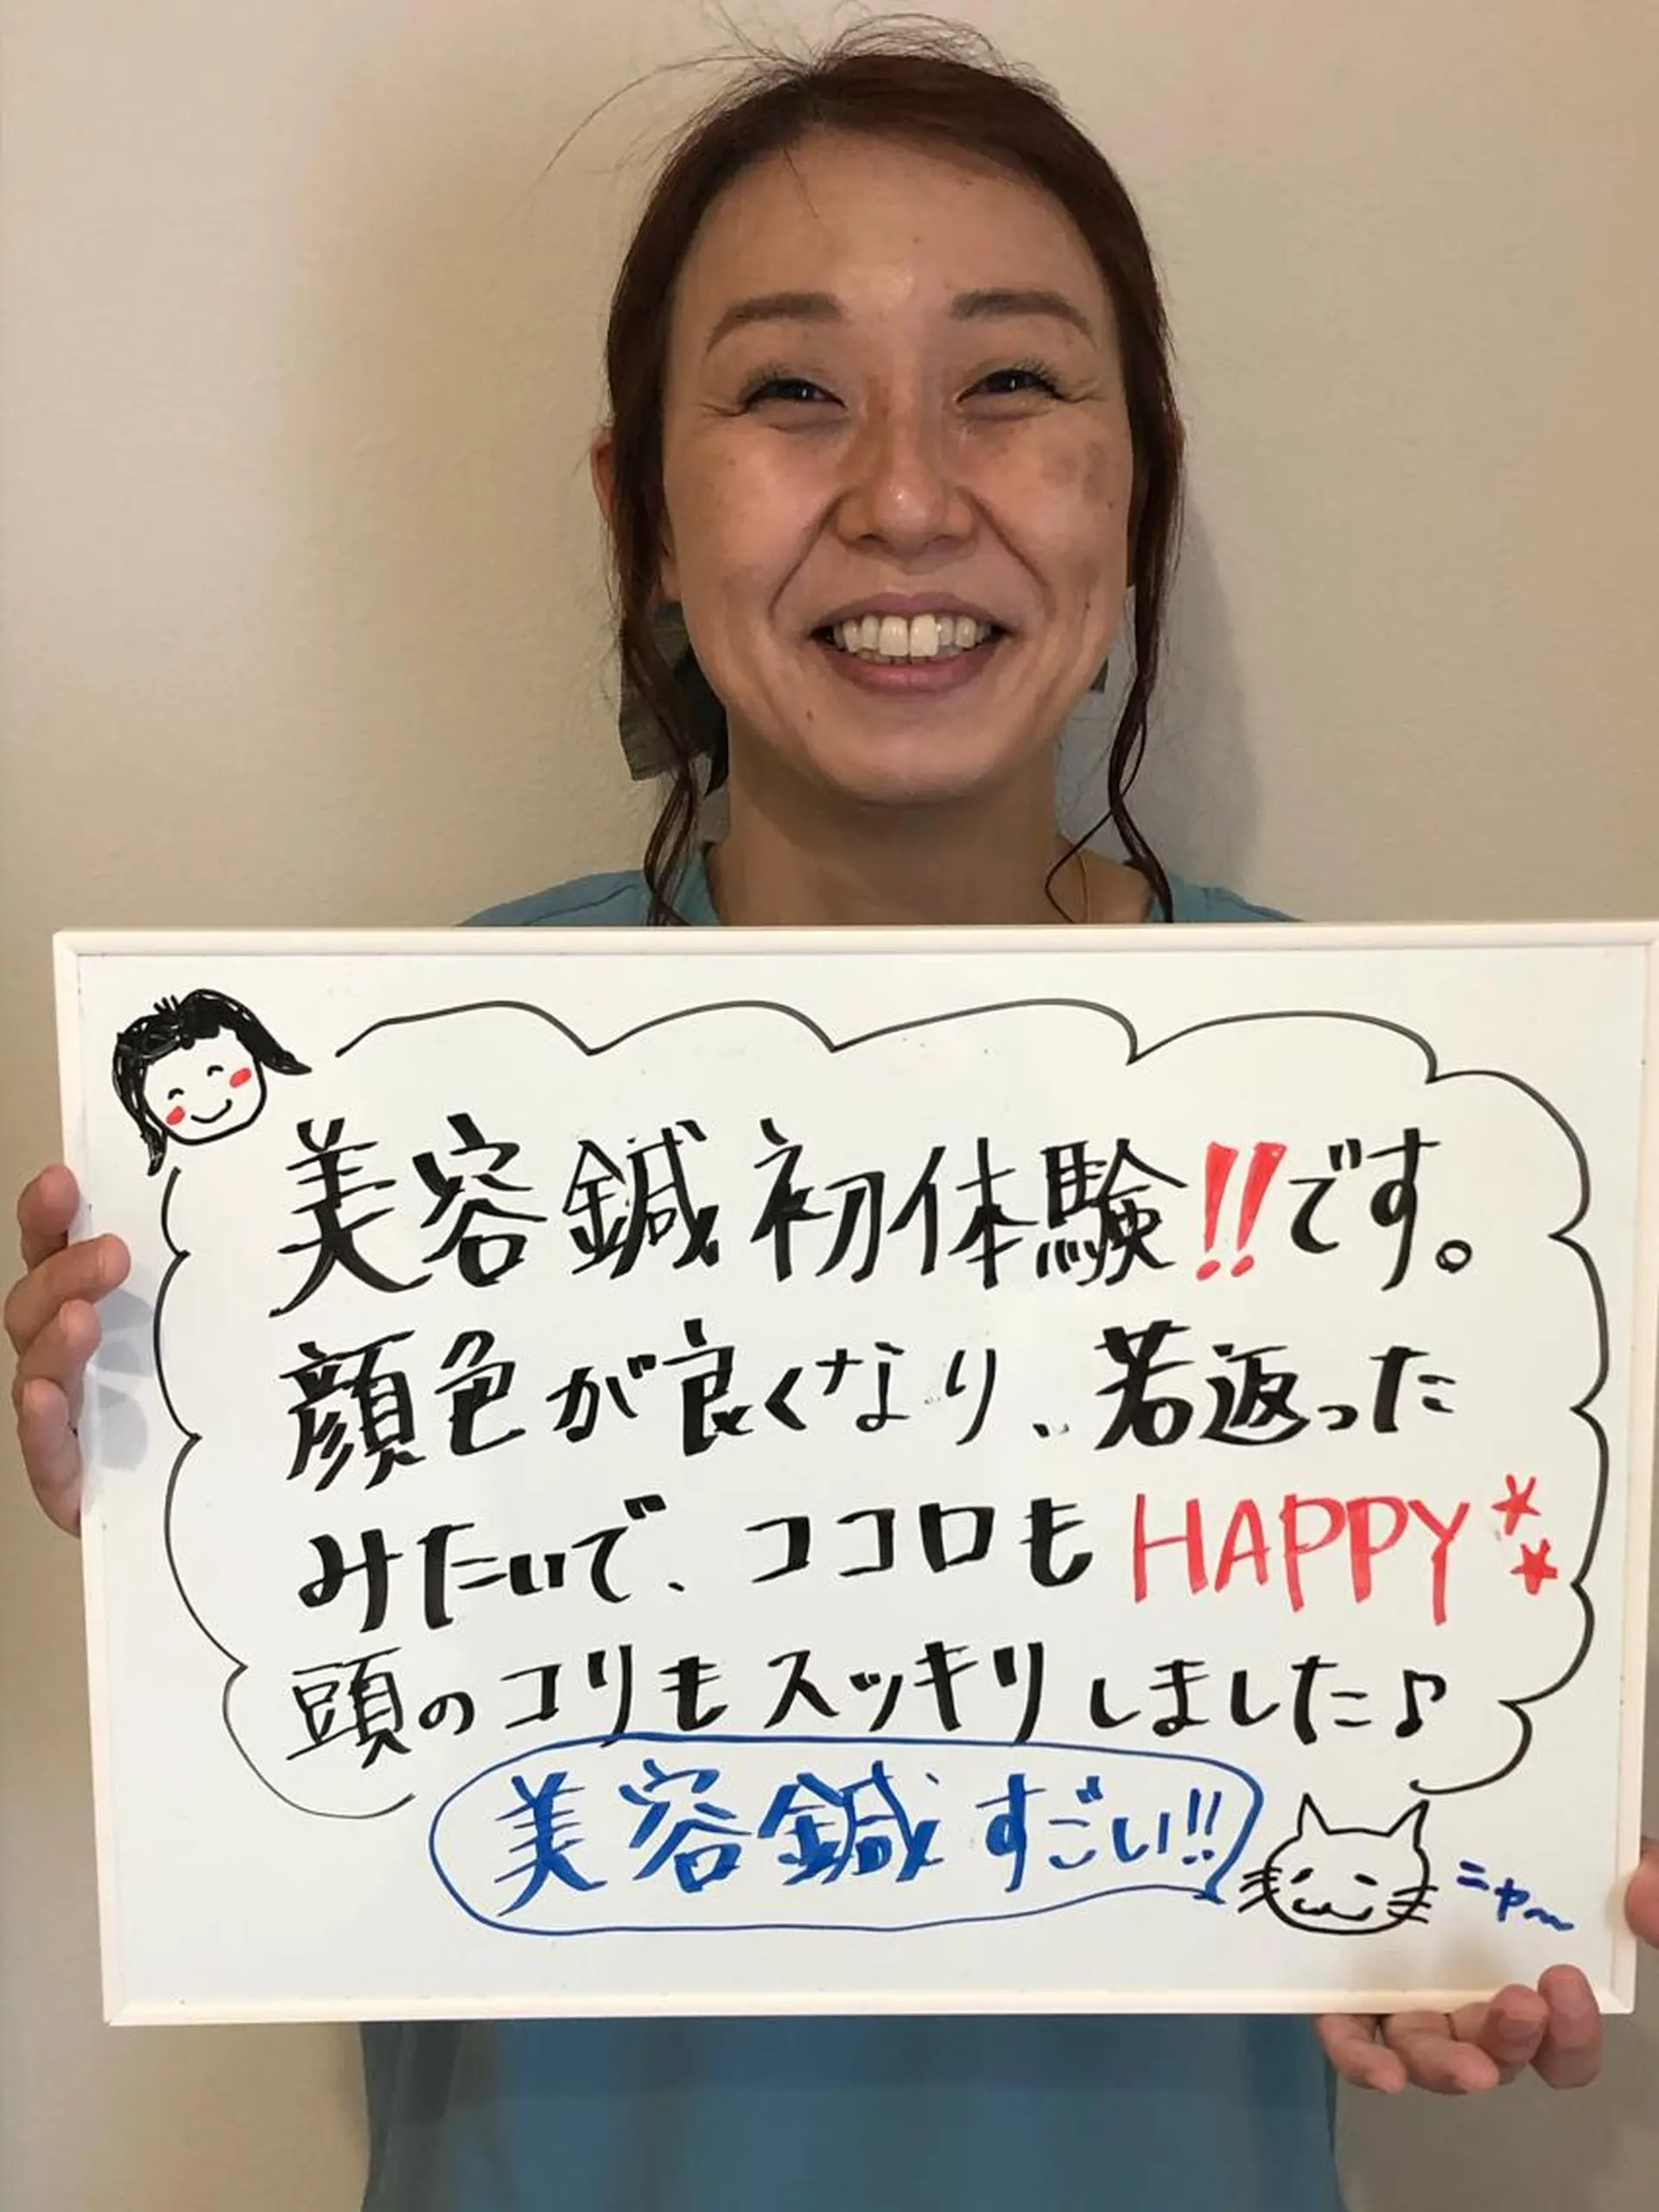 美容鍼初体験!!です。
顔色が良くなり、若返った
みたいで、ココロもHAPPY
頭のコリもスッキリしました♪
美容鍼すごい!!
ニャ〜